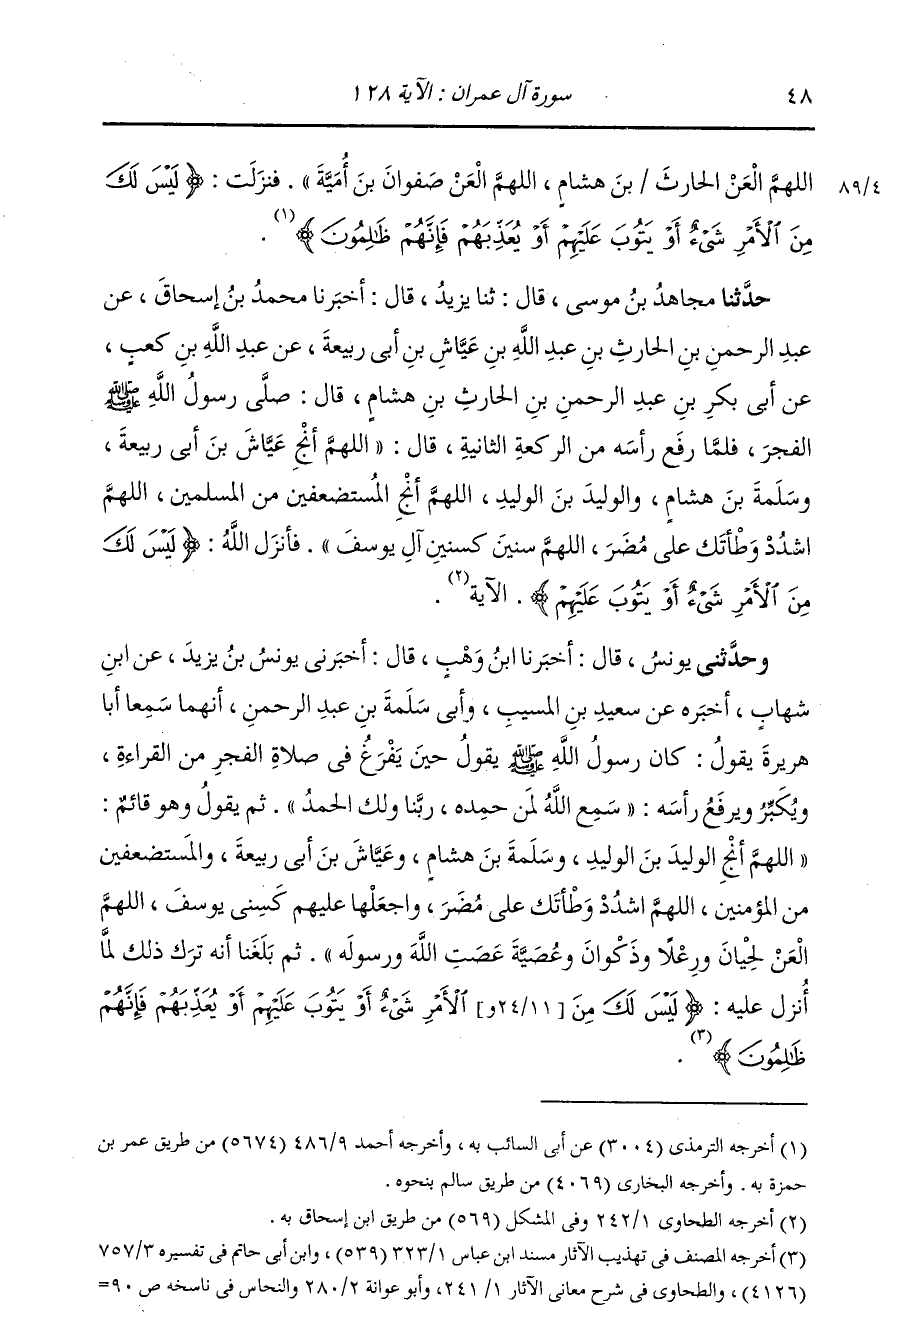 ٤٨ سورة آل عمران : الآية ١٢٨
٨٩/٤ اللهمَّ الْعَنْ الحارثَ / بنَ هشامٍ ، اللهمَّ الْعَنْ صَفوانَ بنَ أُمَيَّةَ » . فنزَلَت : ﴿ لَيْسَ لَكَ
مِنَ ٱلْأَمْرِ شَىْءٌ أَوْ يَتُوبَ عَلَيْهِمْ أَوْ يُعَذِّبَهُمْ فَإِنَّهُمْ ظَٰلِمُونَ ﴾(١) .
حدَّثنا مجاهدُ بنُ موسى ، قال : ثنا يزيدُ ، قال : أخبَرنا محمدُ بنُ إسحاقَ ، عن
عبدِ الرحمنِ بنِ الحارثِ بنِ عبدِ اللَّهِ بنِ عَيَّاشِ بنِ أبى ربيعةَ ، عن عبدِ اللَّهِ بنِ كعبٍ ،
عن أبى بكرِ بنِ عبدِ الرحمنِ بنِ الحارثِ بنِ هشامٍ ، قال : صلَّى رسولُ اللَّهِ ﷺ
الفجرَ ، فلمَّا رفَع رأسَه من الركعةِ الثانيةِ ، قال : « اللهمَّ أنْجِ عَيَّاشَ بنَ أبى ربيعةَ ،
وسَلَمةَ بنَ هشامٍ ، والوليدَ بنَ الوليدِ ، اللهمَّ أنْجِ المُستضعفين من المسلمين ، اللهمَّ
اشدُدْ وَطْأتَك على مُضَرَ ، اللهمَّ سنينَ كسنينِ آلِ يوسفَ » . فأنزَل اللَّهُ : ﴿ لَيْسَ لَكَ
مِنَ ٱلْأَمْرِ شَىْءٌ أَوْ يَتُوبَ عَلَيْهِمْ ﴾ . الآية(٢) .
وحدَّثنى يونسُ ، قال : أخبَرنا ابنُ وَهْبٍ ، قال : أخبَرنى يونسُ بنُ يزيدَ ، عن ابنِ
شهابٍ ، أخبَره عن سعيدِ بنِ المسيبِ ، وأبى سَلَمةَ بنِ عبدِ الرحمنِ ، أنهما سَمِعا أبا
هريرةَ يقولُ : كان رسولُ اللَّهِ ﷺ يقولُ حينَ يَفْرَغُ فى صلاةِ الفجرِ من القراءةِ ،
ويُكَبِّرُ ويرفَعُ رأسَه : « سَمِع اللَّهُ لمَن حمِده ، ربَّنا ولك الحمدُ » . ثم يقولُ وهو قائمٌ :
« اللهمَّ أنْجِ الوليدَ بنَ الوليدِ ، وسَلَمةَ بنَ هشامٍ ، وعَيَّاشَ بنَ أبى ربيعةَ ، والمُستضعفين
من المؤمنين ، اللهمَّ اشدُدْ وَطْأتَك على مُضَرَ ، واجعَلْها عليهم كَسِنى يوسفَ ، اللهمَّ
الْعَنْ لِحْيانَ ورِعْلًا وذَكْوانَ وعُصَيَّةَ عَصَتِ اللَّهَ ورسولَه » . ثم بَلَغَنا أنه ترَك ذلك لمَّا
أُنزل عليه : ﴿ لَيْسَ لَكَ مِنَ [٢٤/١١و] ٱلْأَمْرِ شَىْءٌ أَوْ يَتُوبَ عَلَيْهِمْ أَوْ يُعَذِّبَهُمْ فَإِنَّهُمْ
ظَٰلِمُونَ ﴾(٣) .
(١) أخرجه الترمذى (٣٠٠٤) عن أبى السائب به ، وأخرجه أحمد ٤٨٦/٩ (٥٦٧٤) من طريق عمر بن
حمزة به . وأخرجه البخارى (٤٠٦٩) من طريق سالم بنحوه .
(٢) أخرجه الطحاوى ٢٤٢/١ وفى المشكل (٥٦٩) من طريق ابن إسحاق به .
(٣) أخرجه المصنف فى تهذيب الآثار مسند ابن عباس ٣٢٣/١ (٥٣٩) ، وابن أبى حاتم فى تفسيره ٧٥٧/٣
(٤١٢٦) ، والطحاوى فى شرح معانى الآثار ١/ ٢٤١، وأبو عوانة ٢٨٠/٢ والنحاس فى ناسخه ص ٩٠=